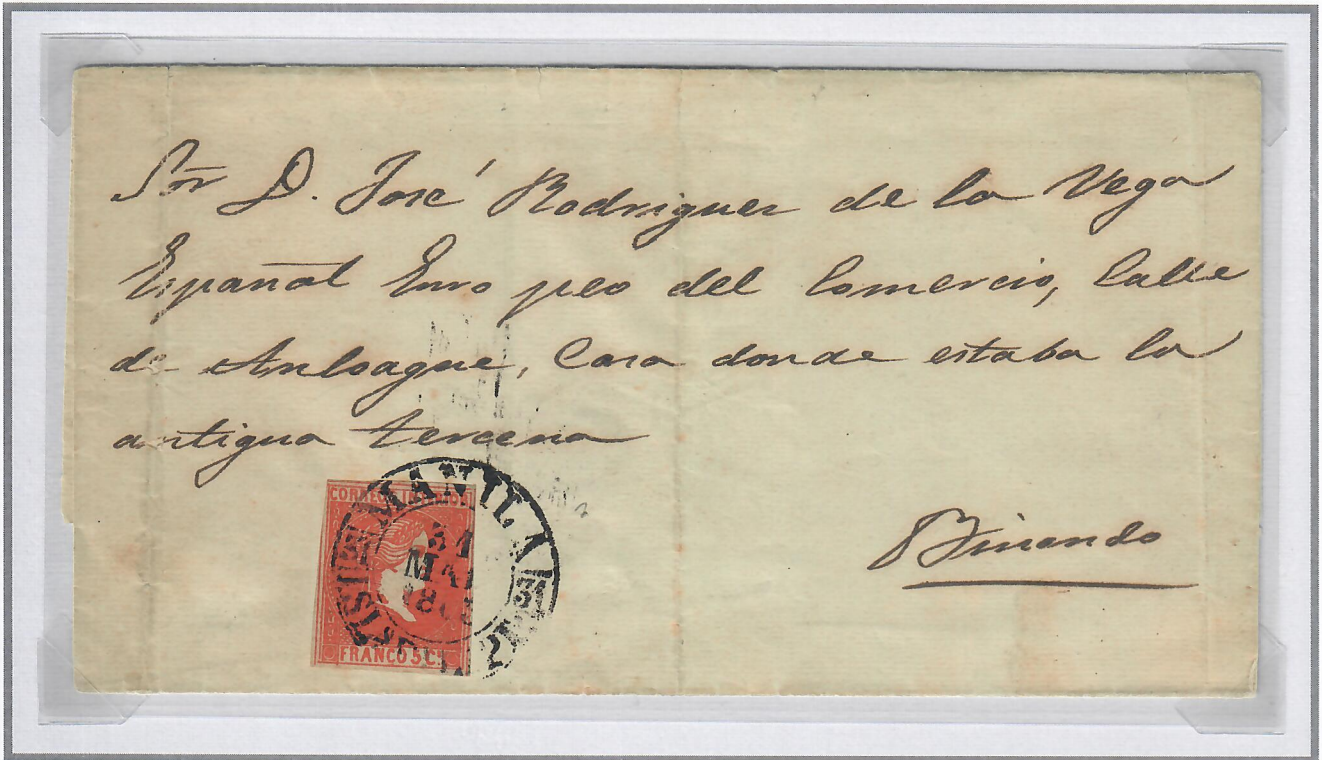 Sõr D. José Rodriguez de la Vega
Español Euro peo del Comercio, Calle
de Anloague, Casa donde estaba la
antigua tercena
Binondo
CORREOS INTERIOR
MANILA
31
MAY
FRANCO 5 C.